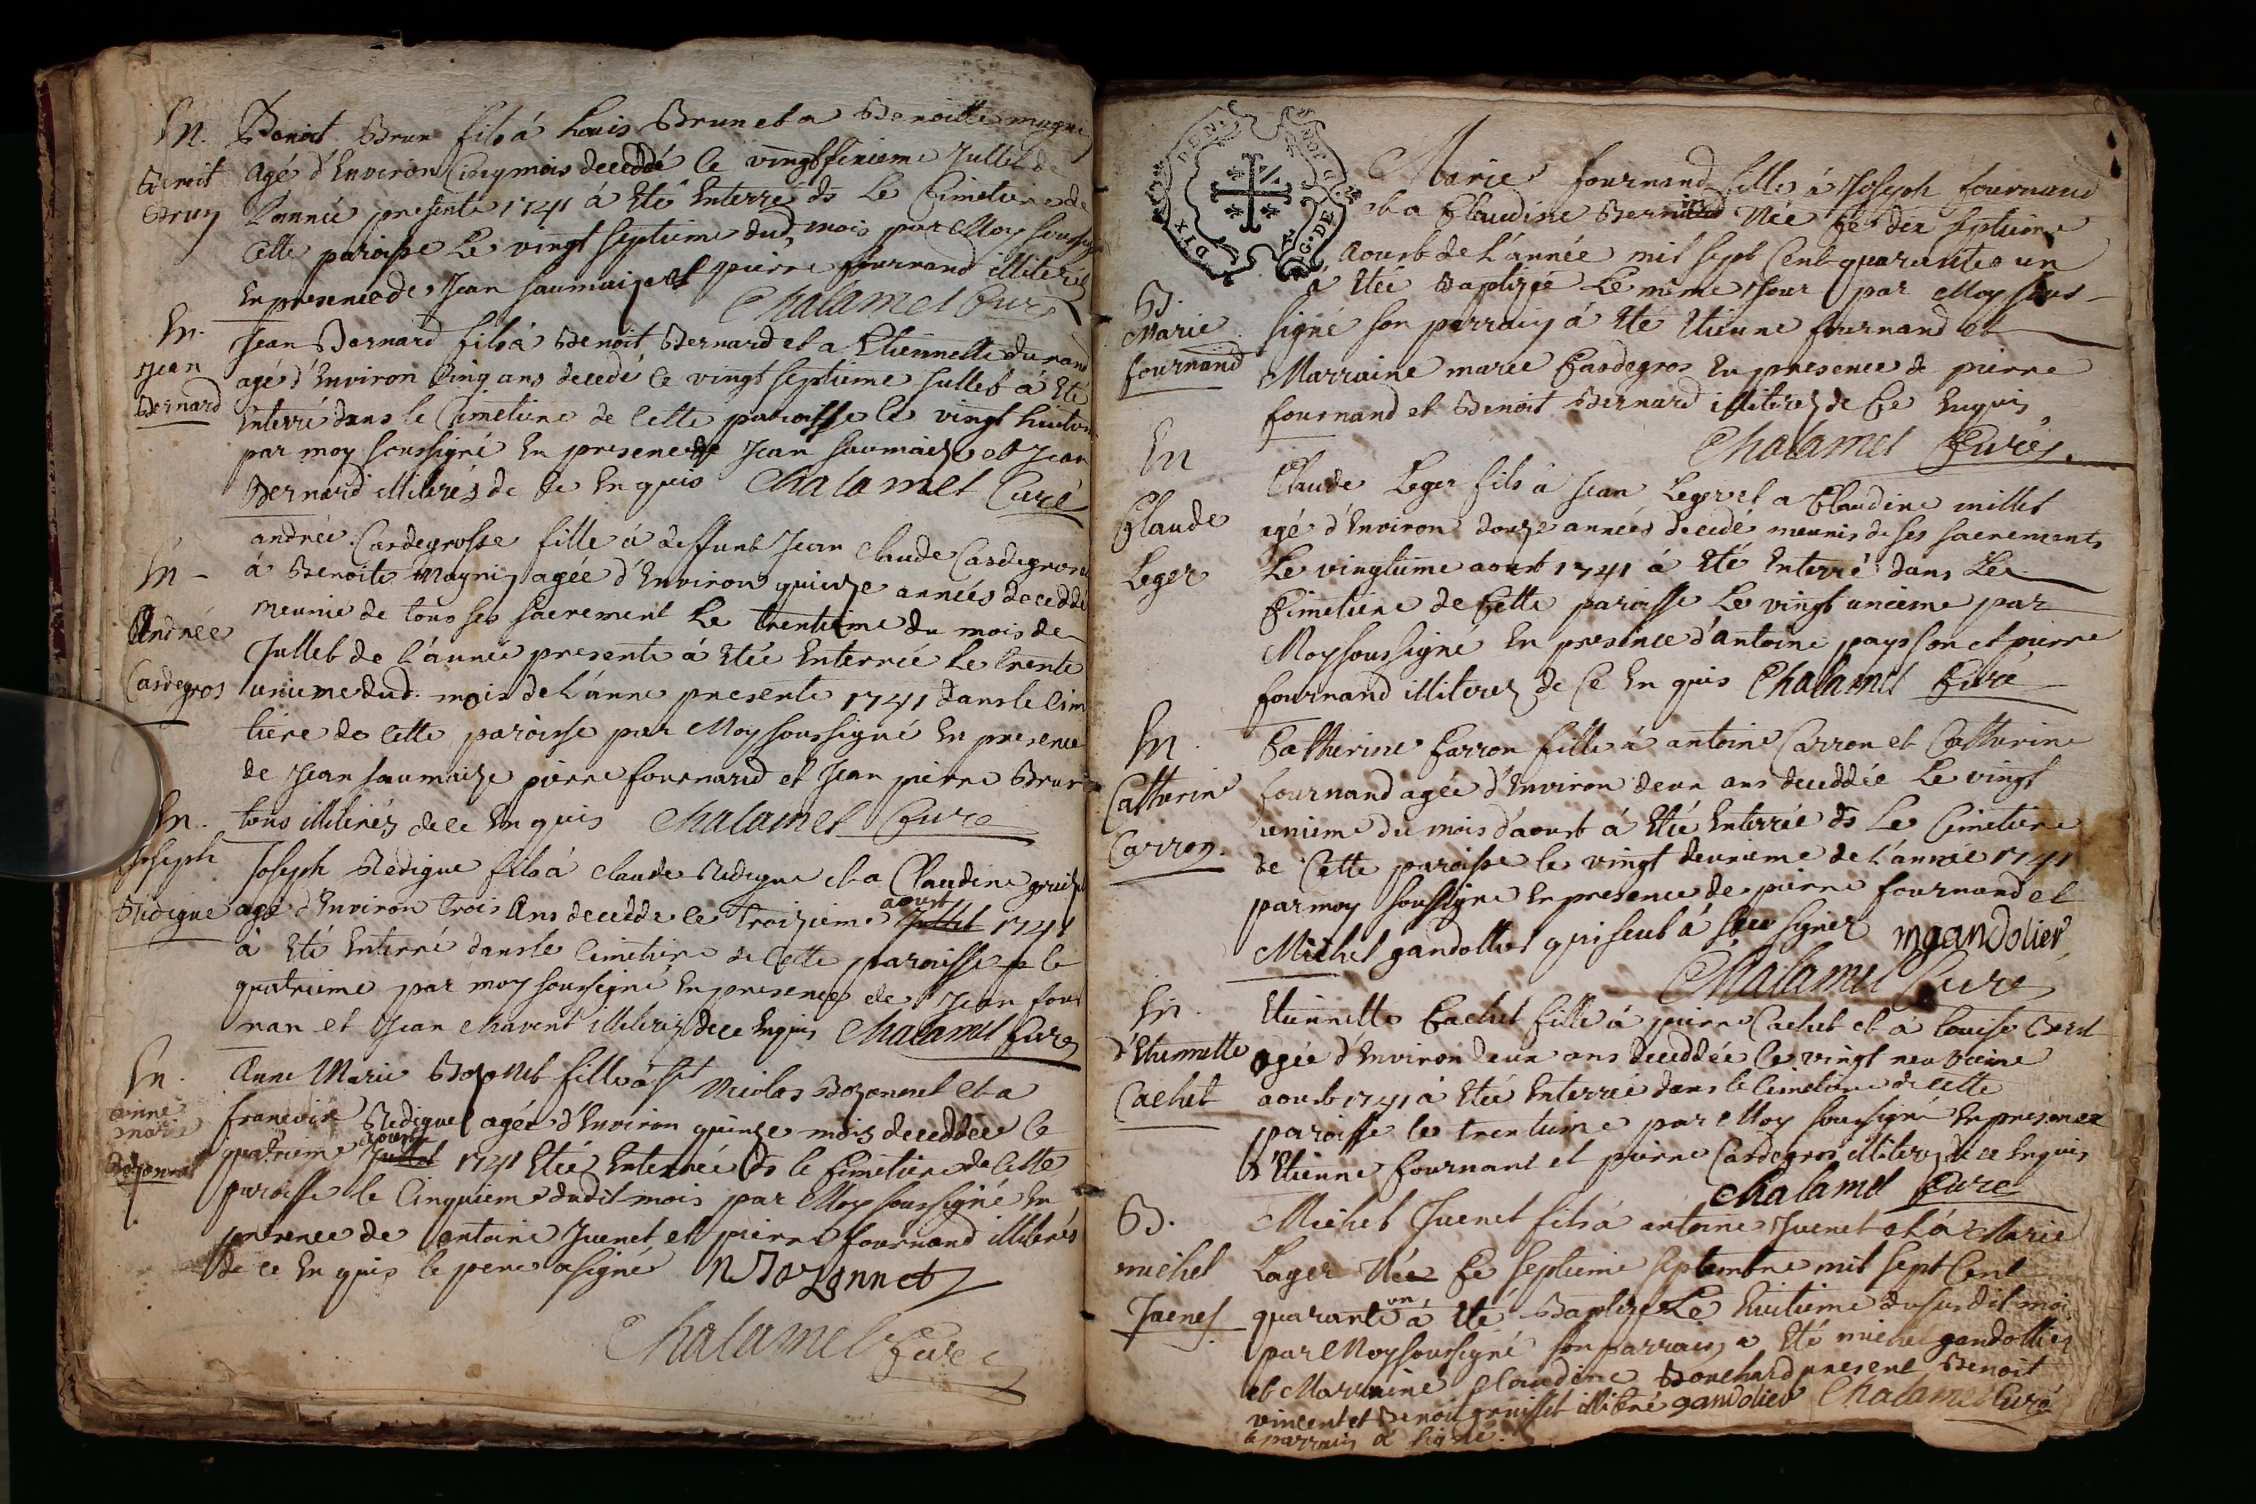 En.
Benoit
Brun
Benoit Brun fils á Louis Brun et a Benoitte magni
agé d'Environ Cinq mois deceddé le vingt sixieme Jullet de
L'année presente 1741 á Eté Enterré ds Le Cimetiere de
Cette paroisse Le vingt septieme dud. mois par Moy soussigné
En presence de Jean saumaize et pierre fournand illiterés
Chalamel Curé
En.
Jean
Bernard
Jean Bernard fils á Benoit Bernard et a Etiennette durand
agé d'Environ Cinq ans decedé le vingt septieme Jullet á Eté
Enterré dans le Cimetiere de Cette paroisse le vingt huitieme
par moy soussigné En presence de Jean saumaize et Jean
Bernard illiterés de ce Enquis Chalamel Curé
En -
Andrée
Casdegros
andrée Casdegrosse fille á deffunt Jean Claude Casdegros et
á Benoite Magniz agée d'Environ quinze années deceddée
meunie de tous ses sacrement Le trentieme du mois de
Jullet de l'année presente á Etée Enterrée Le trente
unieme dud. mois de L'anne presente 1741 dans le Cim
tiere de Cette paroisse par Moy soussigné En presence
de Jean saumaize pierre fournand et Jean pierre Brun
tous illiterés de ce Enquis Chalamel Curé
En.
Joseph
Redigue
Joseph Redigue fils á Claude Redigue et a Claudine
agé d'Environ trois Ans decedde le troizieme Jullet aoust 1741
á Eté Enterré dans le Cimetiere de Cette paroisse le
quatrieme par moy soussigné En presence de Jean four
nan et Jean Chavent illiterez de ce Enquis Chalamel Curé
En.
anne
marie
Bozonnet
Anne Marie Bozonet fille á fft Nicolas Bozonnet et a
francoise Redigue agée d'Environ quinze mois deceddée le
quatrieme Jullet aoust 1741 Eteé Enterrée ds le Cimetiere de Cette
paroisse le Cinquieme dudit mois par Moy soussigné En
presence de antoine Juenet et pierre fournand illiterés
de ce Enquis le pere a signé N Bozonnet
Chalamel Curé
DIX DEN.
G. DE
B.
Marie
fournand
Marie fournand fille á Joseph fournand
et a Claudine Bernard Née Le dix septieme
aoust de L'année mil sept Cent quarante un
á Etée Baptizée Le même Jour par Moy sous
signé son parrain á Eté Etienne fournand et
Marraine marie Casdegros En presence de pierre
fournand et Benoit Bernard illiterez de Ce Enquis
Chalamel Curé
En
Claude
Leger
Claude Leger fils á Jean Leger et a Claudine millet
agé d'Environ douze années decedé meunis de ses sacrements
Le vingtieme aoust 1741 á Eté Enterré dans Le
Cimetiere de Cette paroisse Le vingt unieme par
Moy soussigné En presence d'antoine paysson et pierre
fournand illiterez de Ce Enquis Chalamel Curé
En.
Catherine
Carron.
Catherine Carron fille á antoine Carron et Catherine
fournand agée d'Environ deux ans deceddée Le vingt
unieme du mois d'aoust á Eté Enterrée ds Le Cimetiere
de Cette paroisse le vingt deuxieme de L'année 1741
par moy soussigné En presence de pierre fournand et
Michel gandollier qui seul á sceu signer mgandolier
Chalamel Curé
En.
d'Etiennette
Cachet
Etiennette Cachet fille á pierre Cachet et á Louise
agée d'Environ deux ans deceddée le vingt neuvieme
aoust 1741 á Etée Enterrée dans le Cimetiere de Cette
paroisse le trentieme par Moy soussigné En presence
d'Etienne fournant et pierre Casdegros illiterez de ce Enquis
Chalamel Curé
B.
michel
Juenet
Michel Juenet fils á antoine Juenet et á Marie
Lager Née Le septieme septembre mil sept Cent
quarante un á Eté Baptizé Le huitieme du susdit mois
par Moy soussigné son parrain a Eté michel gandollier
et Marraine Claudine Bouchard present Benoit
vincent et Benoit illiteré gandolier Chalamel Curé
le parrain á signé.